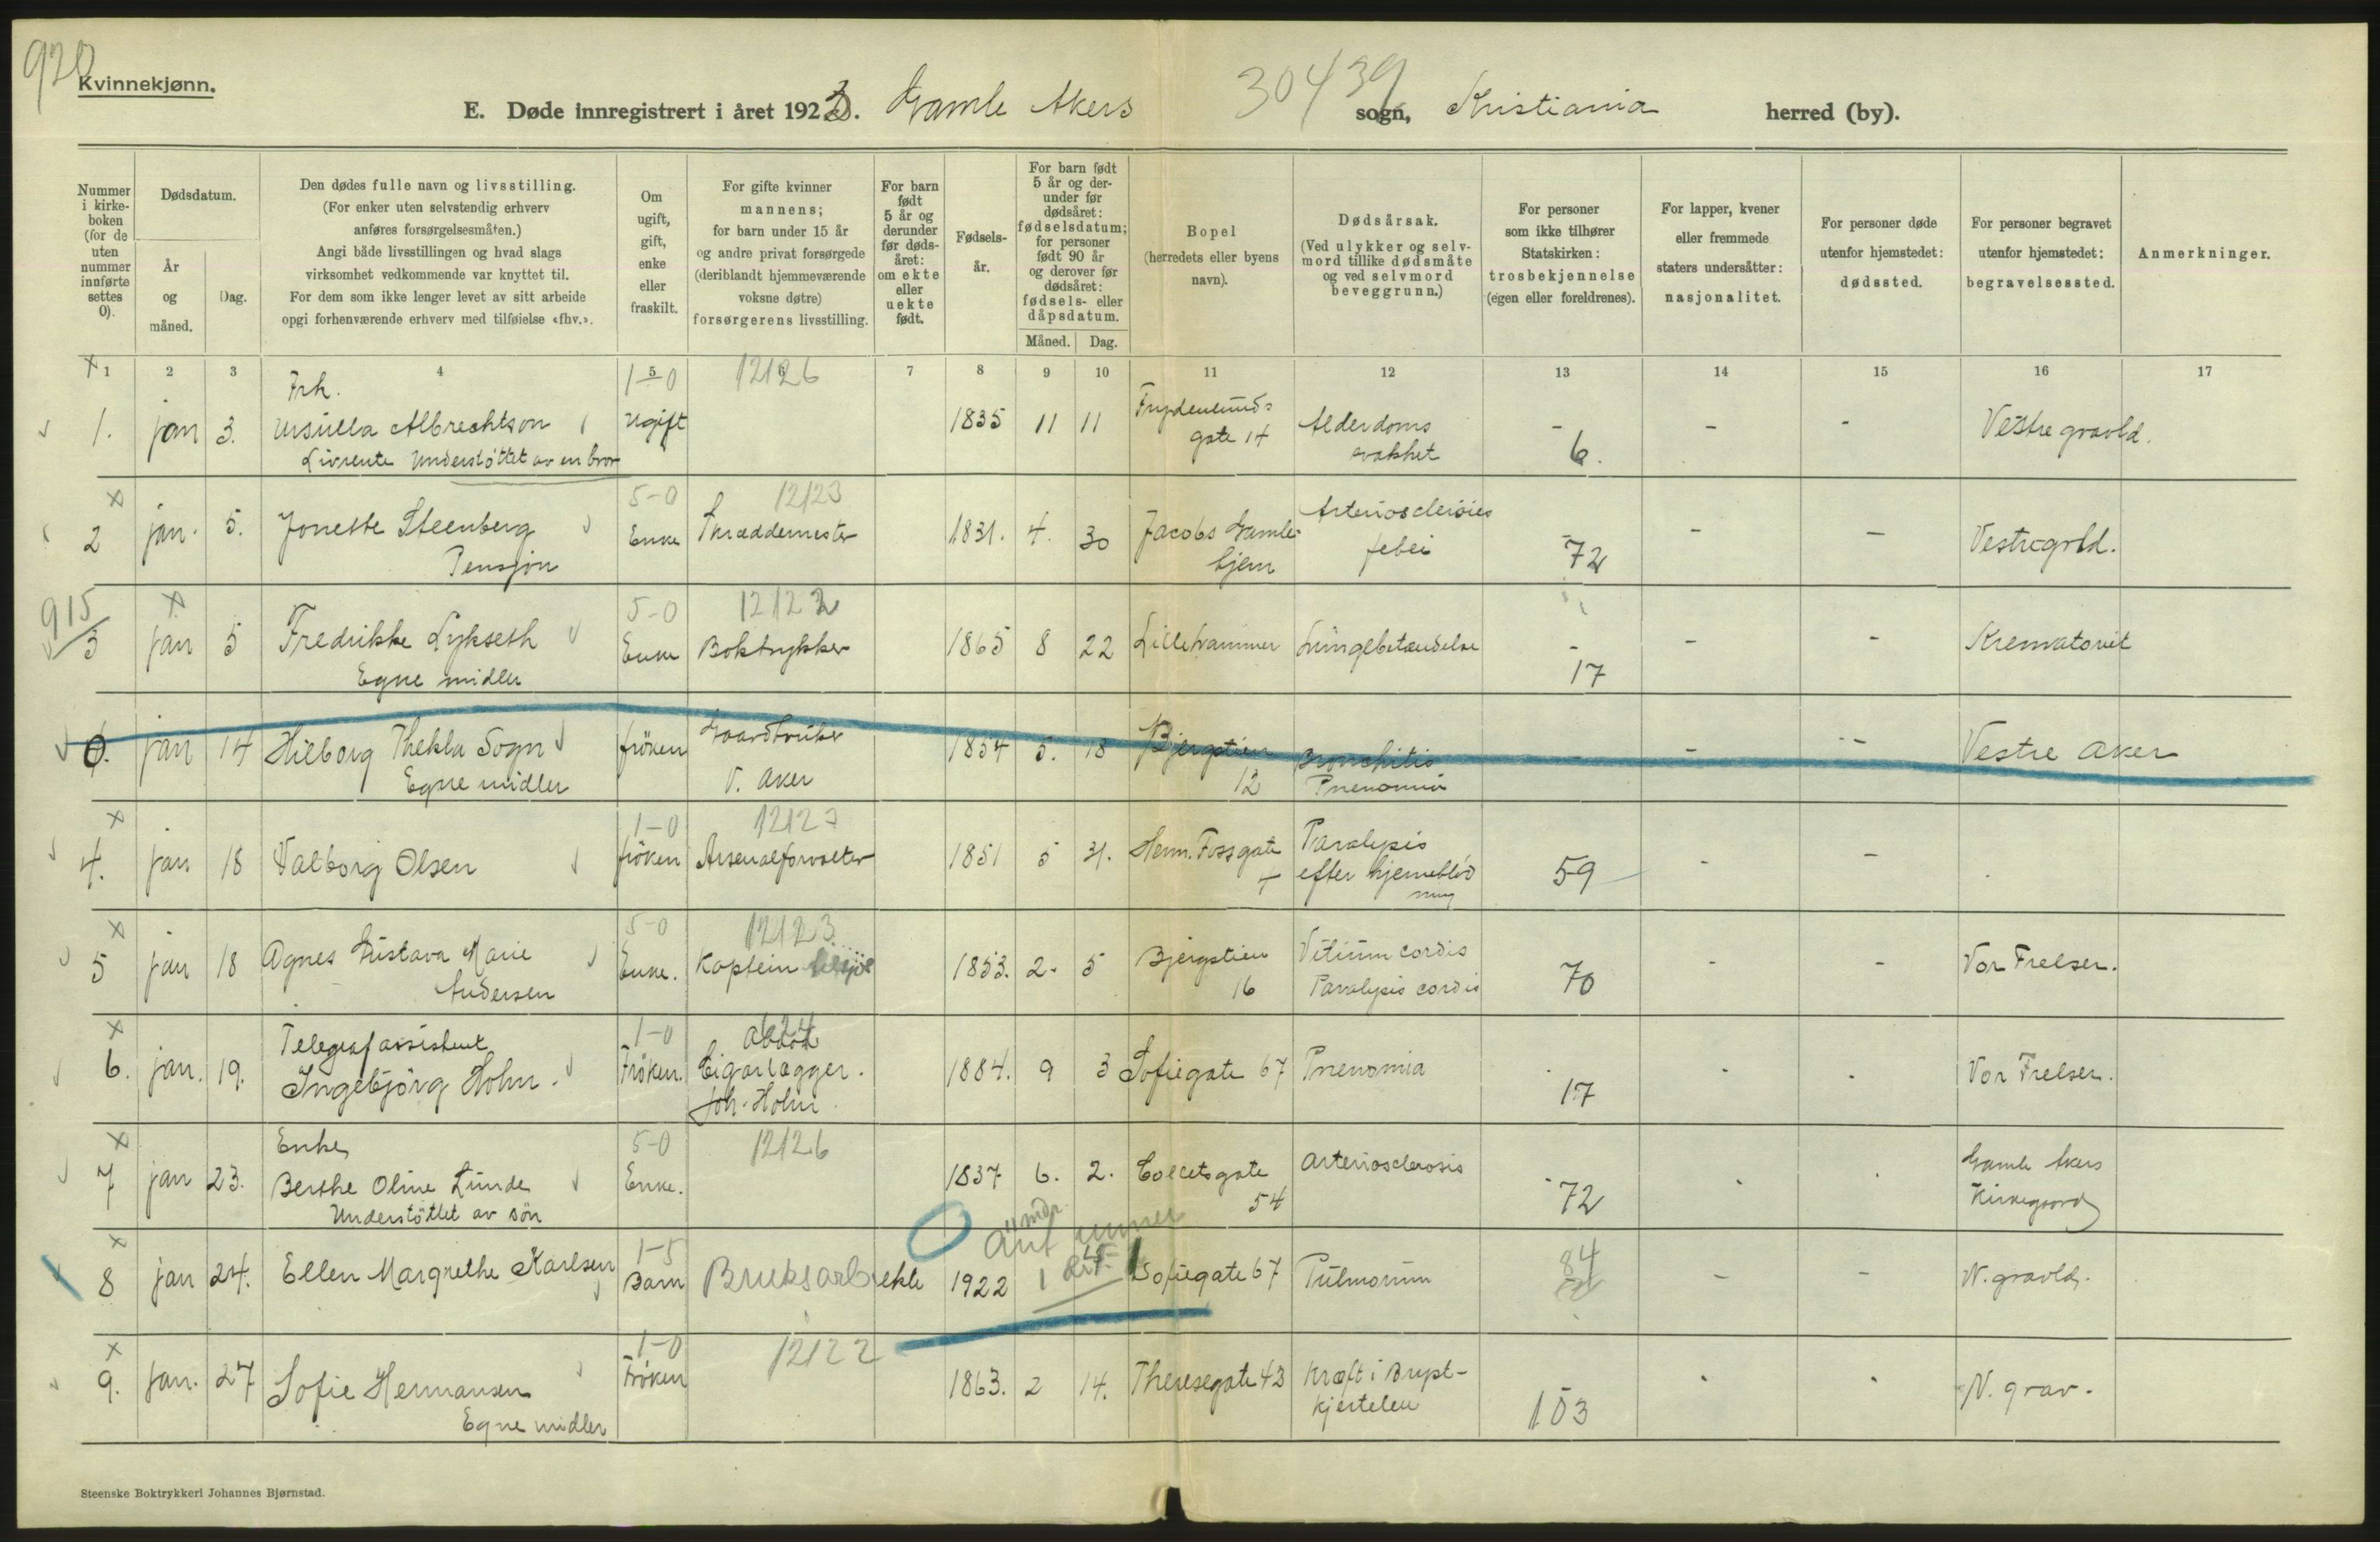 920
Kvinnekjønn.
E. Døde innregistrert i året 1923. Gamle Akers 30439 sogn, Kristiania herred (by).
Nummer i kirkeboken (for de uten nummer innførte settes 0).
Dødsdatum.
År og måned.
Dag.
Den dødes fulle navn og livsstilling.
(For enker uten selvstendig erhverv anføres forsørgelsesmåten.)
Angi både livsstillingen og hvad slags virksomhet vedkommende var knyttet til.
For dem som ikke lenger levet av sitt arbeide opgi forhenværende erhverv med tilføielse «fhv.».
Om ugift, gift, enke eller fraskilt.
For gifte kvinner mannens; for barn under 15 år og andre privat forsørgede (deriblandt hjemmeværende voksne døtre) forsørgerens livsstilling.
For barn født 5 år og derunder før dødsåret: om ekte eller uekte født.
Fødselsår.
For barn født 5 år og derunder før dødsåret: fødselsdatum; for personer født 90 år og derover før dødsåret: fødsels- eller dåpsdatum.
Måned. Dag.
Bopel (herredets eller byens navn).
Dødsårsak.
(Ved ulykker og selvmord tillike dødsmåte og ved selvmord beveggrunn.)
For personer som ikke tilhører Statskirken: trosbekjennelse (egen eller foreldrenes).
For lapper, kvener eller fremmede staters undersåtter: nasjonalitet.
For personer døde utenfor hjemstedet: dødssted.
For personer begravet utenfor hjemstedet: begravelsessted.
Anmerkninger.
1 2 3 4 5 6 7 8 9 10 11 12 13 14 15 16 17
Frk. 1-0 12126
1. jan 3. Ursulla Albrechtson Ugift 1835 11 11 Frydenlunds gate 14 Alderdoms svakhet - 6. - - Vestre gravld.
Livrente Understöttet av en bror
5-0 12123
2 jan. 5. Jonette Steenberg Enke Skræddermester 1831. 4. 30 Jacobs Gamlehjem - 72 - - Vestregrld.
Pensjon
915 5-0 12122
3 jan 5 Fredrikke Lykseth Enke Boktrykker 1865 8 22 Lillehammer Lungebetændelse - 17 - - Krematoriet
Egne midler
0. jan 14 Hilborg Thekla Sogn fröken Gaardbruker V. Aker 1854 5. 18 Bjergstien 12 Bronchitis Pnenomia - - - Vestre Aker
Egne midler
1-0 12127
4. jan 18 Valborg Olsen fröken Arsenalforvalter 1851 5 31. Herm. Fossgate Paralysis efter hjerneblödning 59 - -
5-0 12123
5 jan 18 Agnes Gustava Marie Andersen Enke. Kaptein 1853. 2. 5 Bjergstien 16 Vitium cordis Paralysis cordis 70 - - Vor Frelser.
1-0
Telegrafassistent
6. jan. 19. Ingebjörg Holm. Fröken. Cigarlagger. Joh. Holm 1884. 9 3 Sofiegate 67 Pnenomia 17 - - Vor Frelser.
Enke 5-0 12126
7 jan 23. Berthe Oline Lunde Enke. 1837 6. 2. Colletsgate 54 Arteriosclerosis 72 - - Gamle Akers Kirkegaard
Understöttet av sön
11 mdr.
1-5
8 jan 24. Ellen Margrethe Karlsen Barn Bruksarb ekte 1922 1 Sofiegate 67 Pulmonum 84 - - N. gravld.
1-0 12122
9. jan. 27 Sofie Hermansen Fröken 1863. 2 14. Theresegate 43 Kræft i Brystkjertelen 103 - - N. grav.
Egne midler
Steenske Boktrykkeri Johannes Bjørnstad.